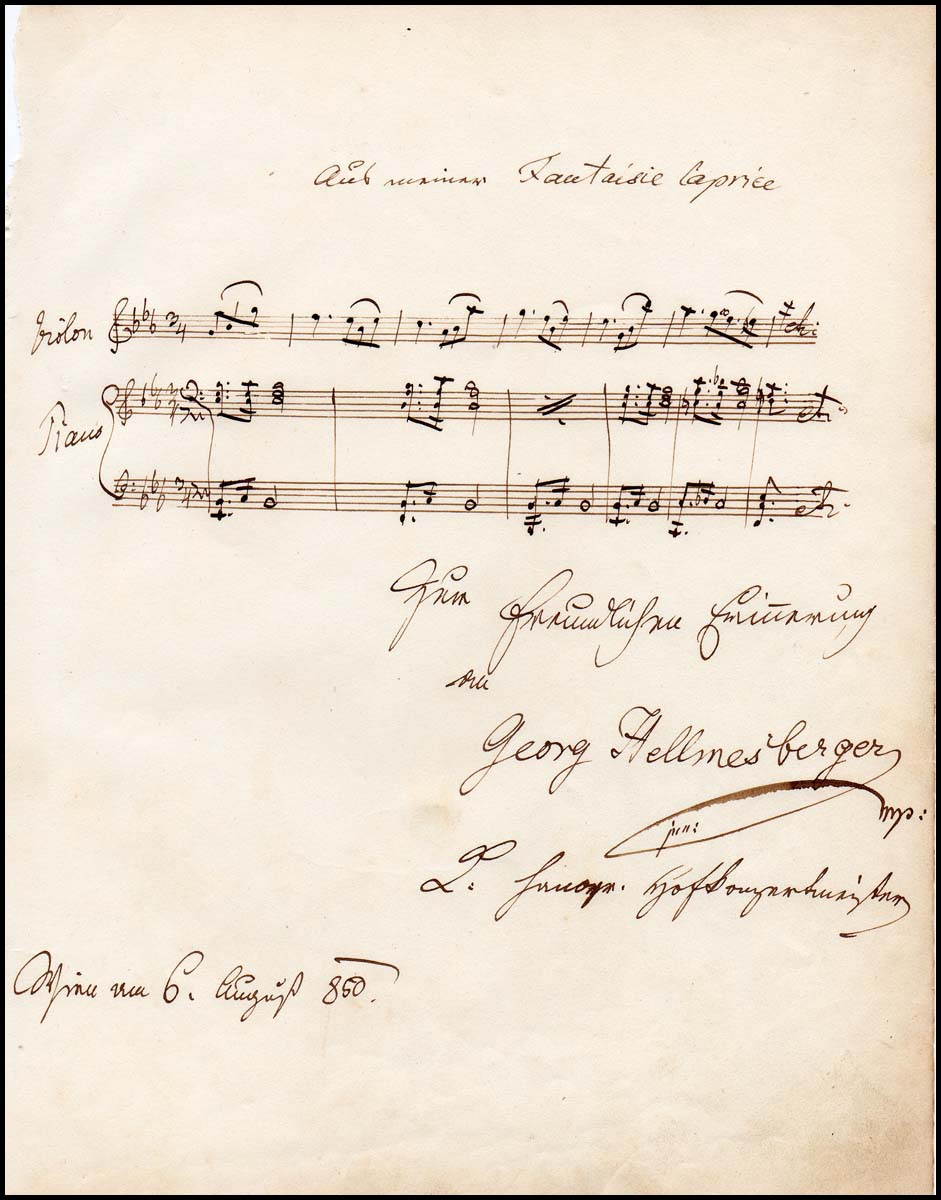 Aus meiner Fantaisie Caprice
Violon
etc:
Piano
etc.
etc:
Zur freundlichen Erinnerung
an
Georg Hellmesberger
jun: mp:
K: hannovr. Hofkonzertmeister
Wien am 6. August 850.